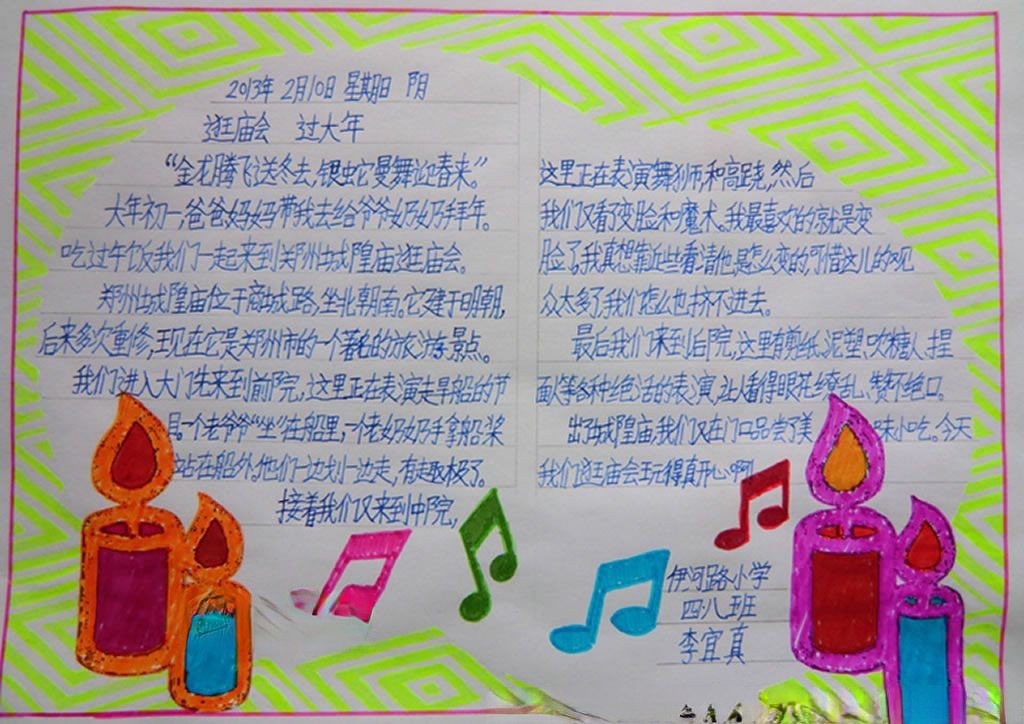 2013年 2月10日 星期日 阴
逛庙会 过大年
“金龙腾飞送冬去,银蛇曼舞迎春来。”
大年初一,爸爸妈妈带我去给爷爷奶奶拜年。
吃过午饭我们一起来到郑州城隍庙逛庙会。
郑州城隍庙位于商城路,坐北朝南。它建于明朝,
后来多次重修,现在它是郑州市的一个著名的旅游景点。
我们进入大门先来到前院,这里正在表演走旱船的节
目,一个老爷爷“坐”在船里,一个老奶奶手拿船桨
站在船外,他们一边划一边走,有趣极了。
接着我们又来到中院,
这里正在表演舞狮和高跷,然后
我们又看了变脸和魔术。我最喜欢的就是变
脸了,我真想靠近些看清他是怎么变的,可惜这儿的观
众太多了,我们怎么也挤不进去。
最后我们来到后院,这里有剪纸、泥塑、吹糖人、捏
面人等各种绝活的表演,让人看得眼花缭乱、赞不绝口。
出了城隍庙,我们又在门口品尝了美味小吃。今天
我们逛庙会玩得真开心啊!
伊河路小学
四.八班
李宜真